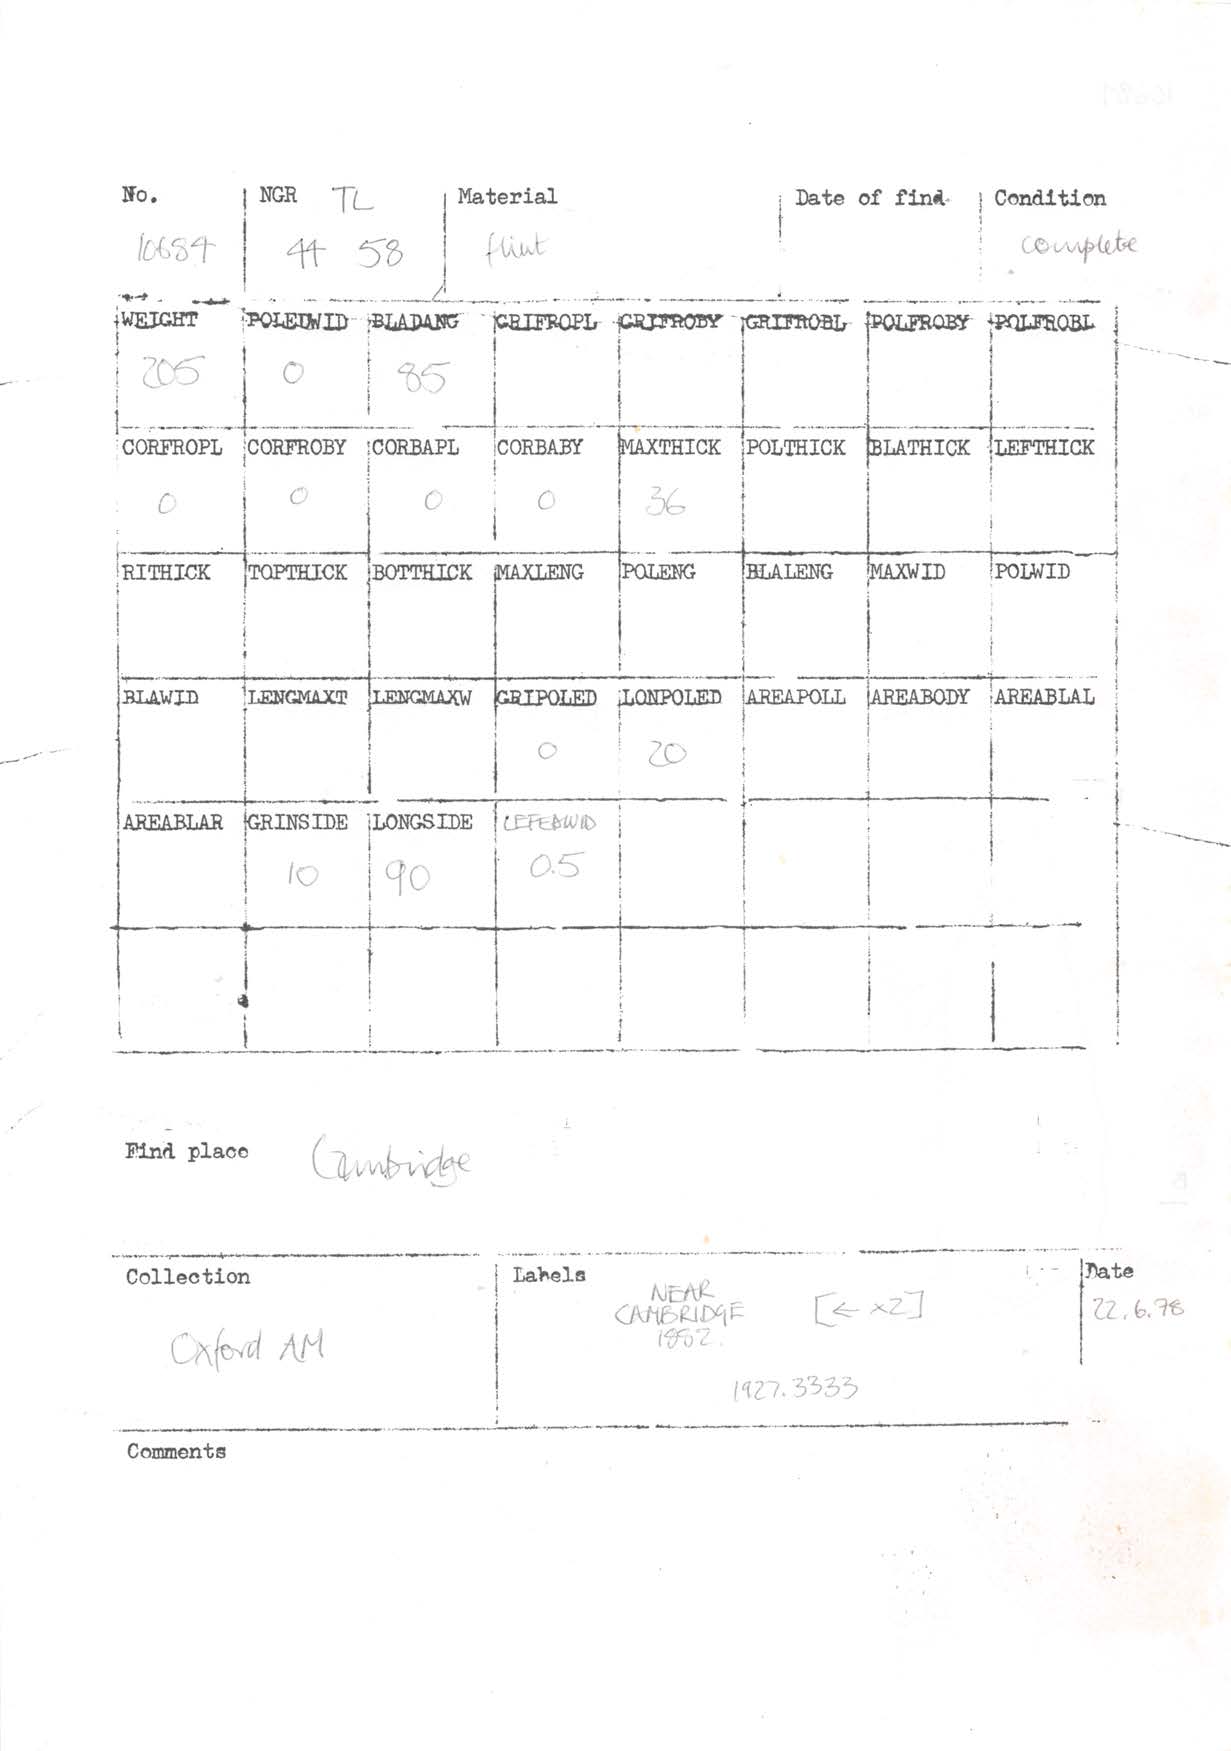 No. NGR TL Material Date of find Condition
10684 44 58 flint complete
WEIGHT POLEDWID BLADANG GRIFROPL GRIFROBY GRIFROBL POLFROBY POLFROBL
205 0 85
CORFROPL CORFROBY CORBAPL CORBABY MAXTHICK POLTHICK BLATHICK LEFTHICK
0 0 0 0 36
RITHICK TOPTHICK BOTTHICK MAXLENG POLENG BLALENG MAXWID POLWID
BLAWID LENGMAXT LENGMAXW GRIPOLED LONPOLED AREAPOLL AREABODY AREABLAL
0 20
AREABLAR GRINSIDE LONGSIDE LEFEDWID
10 90 0.5
Find place Cambridge
Collection Labels Date
NEAR
CAMBRIDGE [← x2] 22.6.78
1882.
Oxford AM
1927.3333
Comments